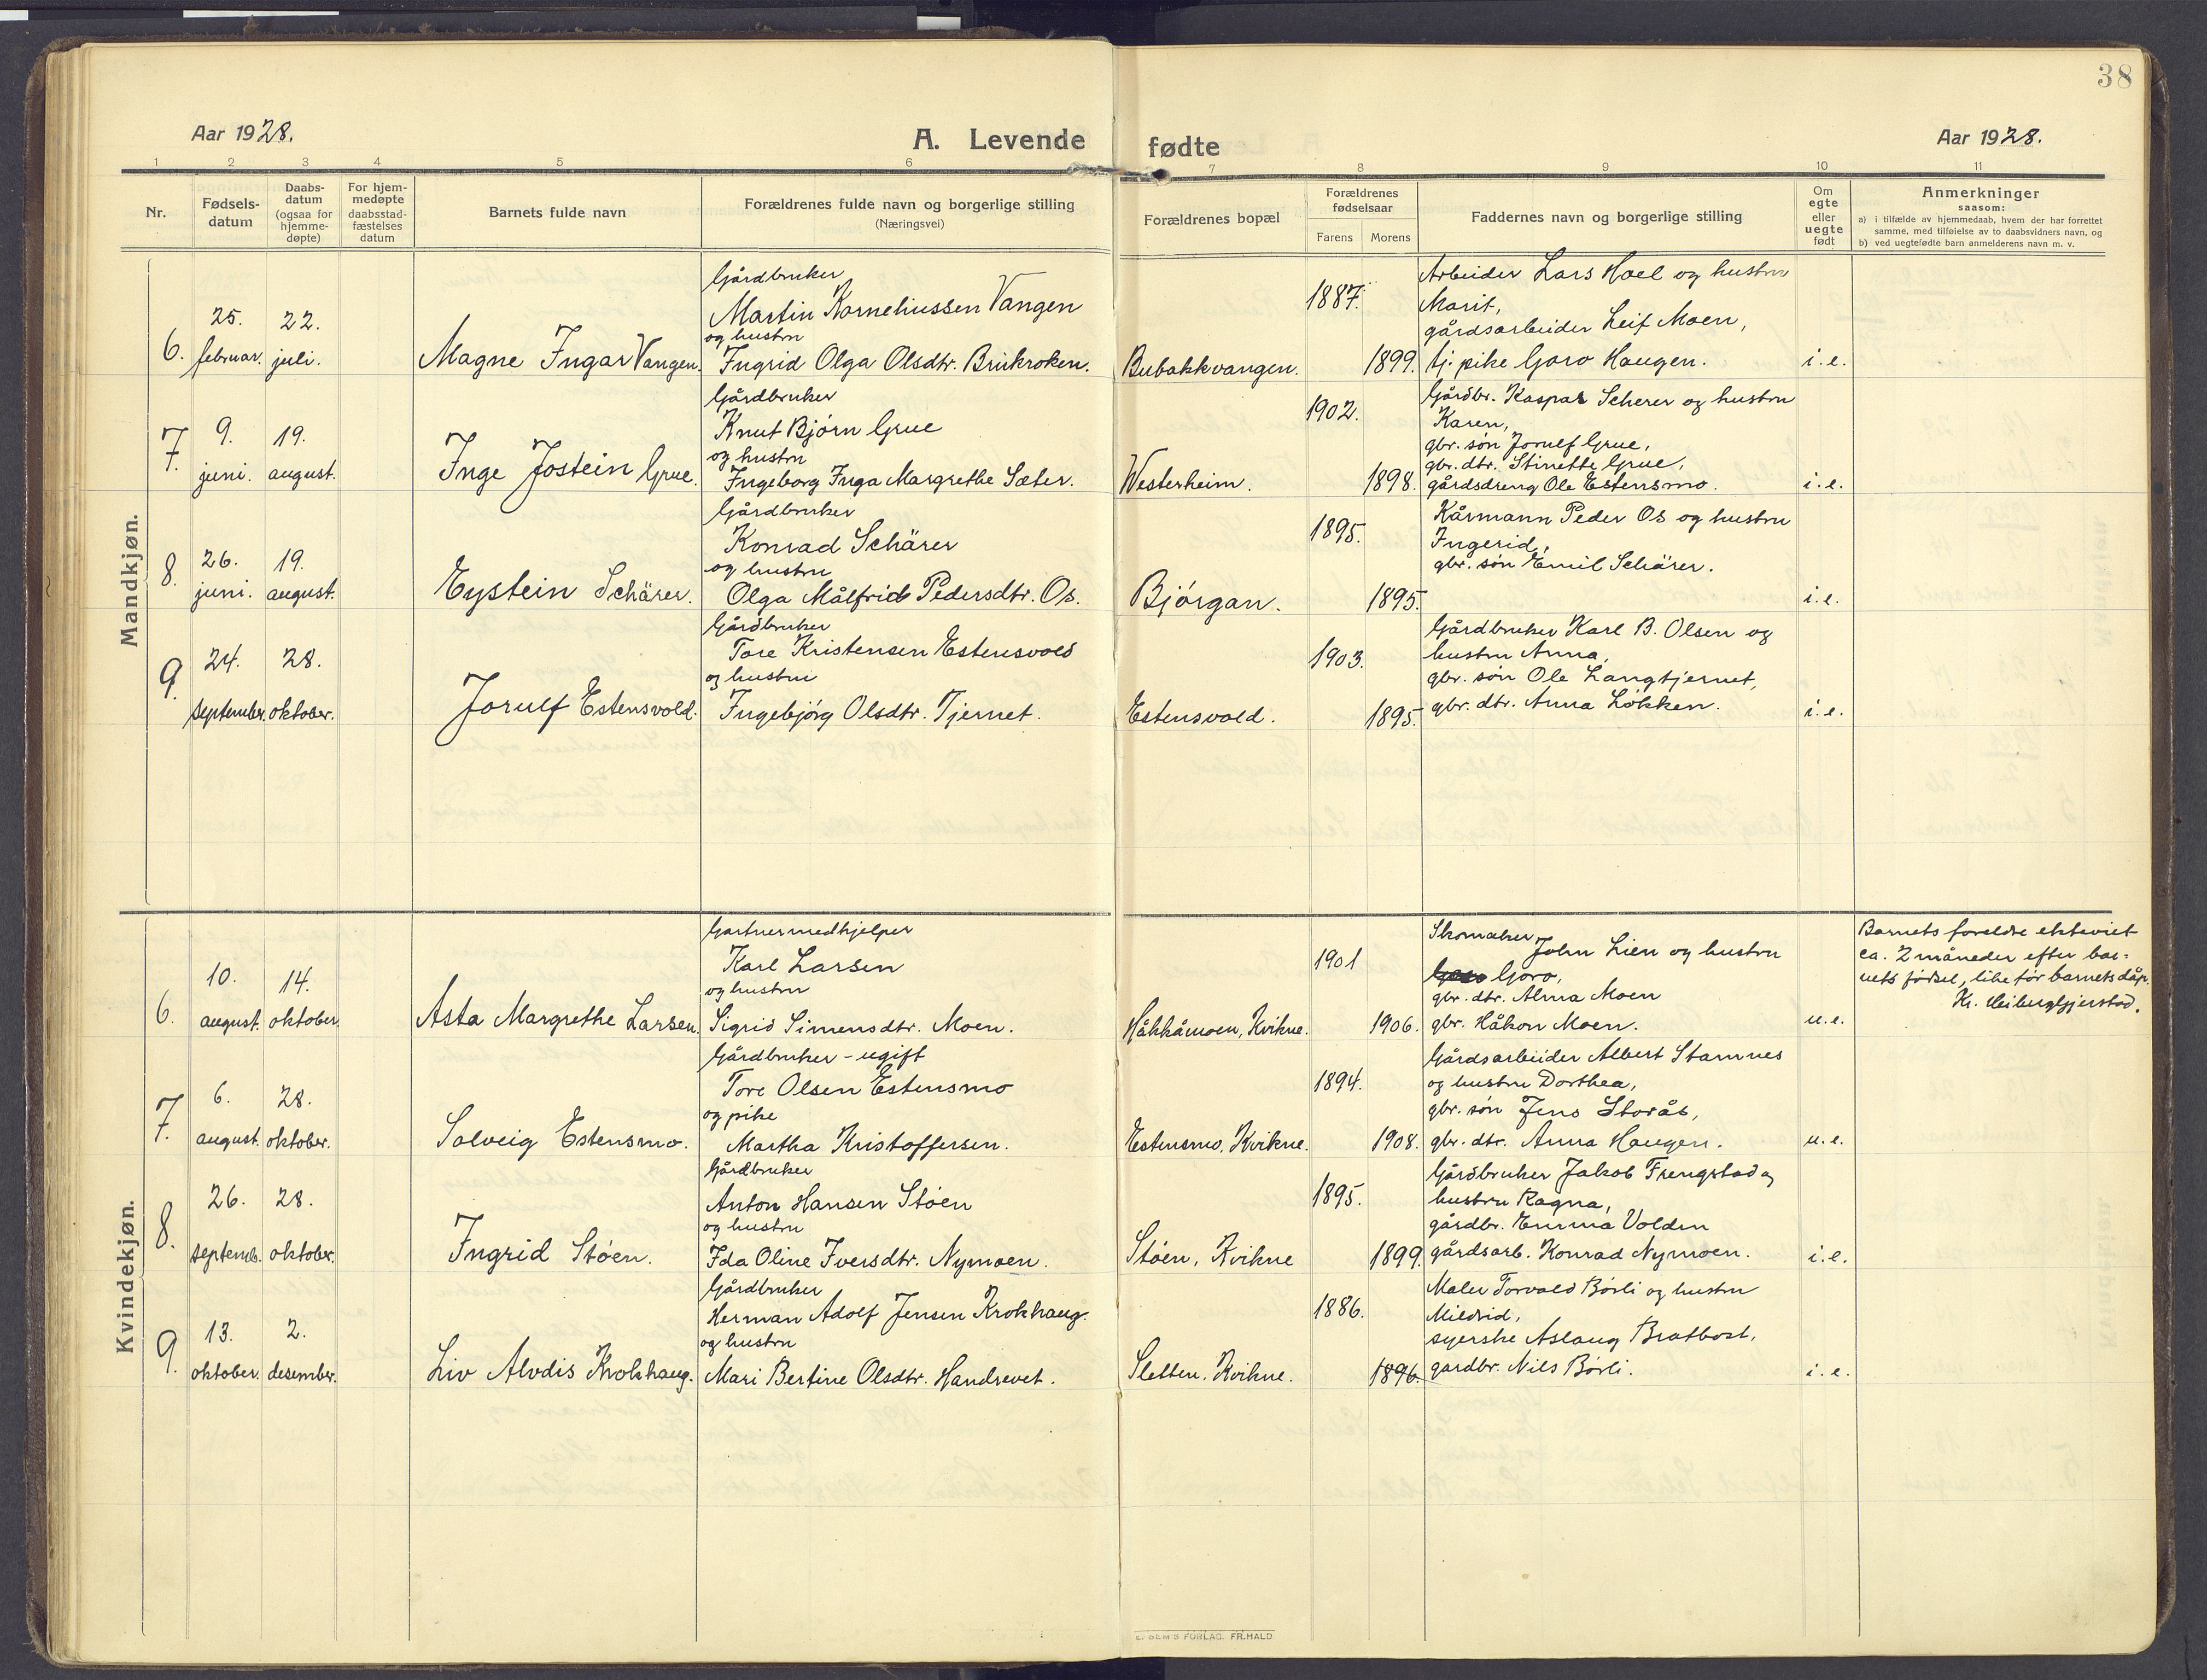 38
Aar 1928.
A. Levende fødte
Aar 1928.
1 2 3 4 5 6 7 8 9 10 11
Nr.
Fødsels-
datum
Daabs-
datum
(ogsaa for
hjemme-
døpte)
For hjem-
medøpte
daabsstad-
fæstelses
datum
Barnets fulde navn
Forældrenes fulde navn og borgerlige stilling
(Næringsvei)
Forældrenes bopæl
Forældrenes
fødselsaar
Farens Morens
Faddernes navn og borgerlige stilling
Om
egte
eller
uegte
født
Anmerkninger
saasom:
a) i tilfælde av hjemmedaab, hvem der har forrettet
samme, med tilføielse av to daabsvidners navn, og
b) ved uegtefødte barn anmelderens navn m. v.
Mandkjøn.
6.
25.
februar.
22.
juli.
Magne Ingar Vangen.
Gårdbruker
Martin Korneliussen Vangen
og hustru
Ingrid Olga Olsdtr. Brukroken.
Bubakkvangen.
1887.
1899.
Arbeider Lars Hoel og hustru
Marit,
gårdsarbeider Leif Moen,
tj. pike Goro Haugen.
i.e.
7.
9.
juni.
19.
august.
Inge Jostein Grue.
Gårdbruker
Knut Bjórn Grue
og hustru
Ingeborg Inga Margrethe Sæter.
Westerheim.
1902.
1898.
Gårdbr. Kaspar Scherer og hustru
Karen,
gbr. søn Jorulf Grue,
gbr. dtr. Stinette Grue,
gårdsdreng Ole Estensmo.
i.e.
8.
26.
juni.
19.
august.
Eystein Schärer.
Gårdbruker
Konrad Schärer
og hustru
Olga Målfrid Pedersdtr. Os.
Bjórgan.
1895.
1895.
Kårmann Peder Os og hustru
Ingerid,
gbr. søn Emil Schärer.
i.e.
9.
24.
september.
28.
oktober.
Jorulf Estensvold.
Gårdbruker
Tore Kristensen Estensvold
og hustru
Ingebjórg Olsdtr. Tjernet.
Estensvold.
1903.
1895.
Gårdbruker Karl B. Olsen og
hustru Anna,
gbr. søn Ole Langtjernet,
gbr. dtr. Anna Lókken.
i.e.
Kvindekjøn.
6.
10.
august.
14.
oktober.
Asta Margrethe Larsen.
Gartnermedhjelper
Karl Larsen
og hustru
Sigrid Simensdtr. Moen.
Håkkåmoen, Kvikne.
1901
1906.
Skomaker John Lien og hustru
Goro,
gbr. dtr. Alma Moen
gbr. Håkon Moen.
u.e.
Barnets foreldre ekteviet
ca. 2 måneder efter bar=
nets fødsel, like før barnets dåp.
Kr. Heiberg Gjerstad.
7.
6.
august.
28.
oktober.
Solveig Estensmo.
Gårdbruker - ugift
Tore Olsen Estensmo
og pike
Martha Kristoffersen.
Estensmo, Kvikne.
1894.
1908.
Gårdsarbeider Albert Stamnes
og hustru Dorthea,
gbr. søn Jens Storås,
gbr. dtr. Anna Haugen.
u.e.
8.
26.
septemb.
28.
oktober.
Ingrid Stóen.
Gårdbruker
Anton Hansen Stóen
og hustru
Ida Oline Iversdtr. Nymoen.
Stóen, Kvikne
1895.
1899.
Gårdbruker Jakob Frengstad og
hustru Ragna,
gårdbr. Emma Volden
gårdsarb. Konrad Nymoen.
i.e.
9.
13.
oktober.
2.
desember.
Liv Alvdis Krokhaug.
Gårdbruker
Herman Adolf Jensen Krokhaug.
og hustru
Mari Bertine Olsdtr. Handrevet.
Sletten, Kvikne.
1886.
1896.
Maler Torvald Børli og hustru
Mildrid,
syerske Aslaug Bratbost,
gardbr. Nils Børli.
i.e.
SEM'S FORLAG. FR. HALD